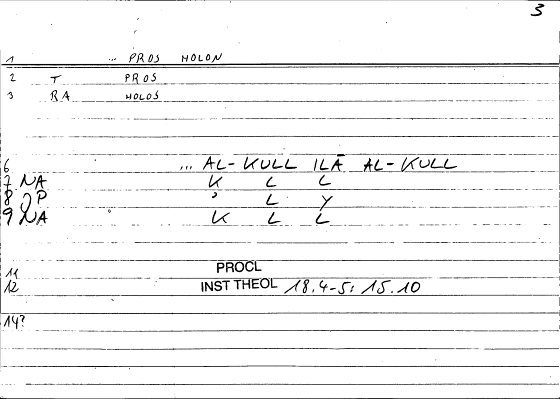 3
1 ... PROS HOLON
2 T PROS
3 RA HOLOS
6 ... AL-KULL ILĀ AL-KULL
7 NA K L L
8 JP ʾ L Y
9 NA K L L
11 PROCL
12 INST THEOL 18.4-5: 15.10
14?